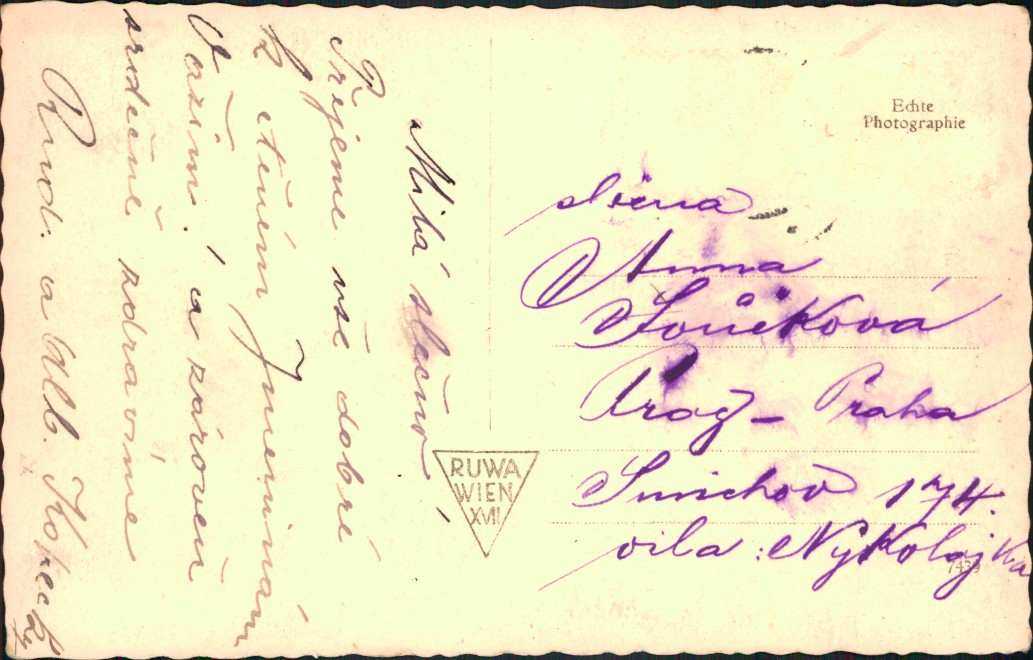 Milá slečno!
Přejeme vše dobré
k ctěním Jmeninám
Vašim! a zároveň
srdečně zdravíme
Rud. a Alb. Kopecký
Echte
Photographie
slečna
Anna
Součková
Prag – Praha
Smichov 174.
vila: Nykolajka
RUWA
WIEN
XVII